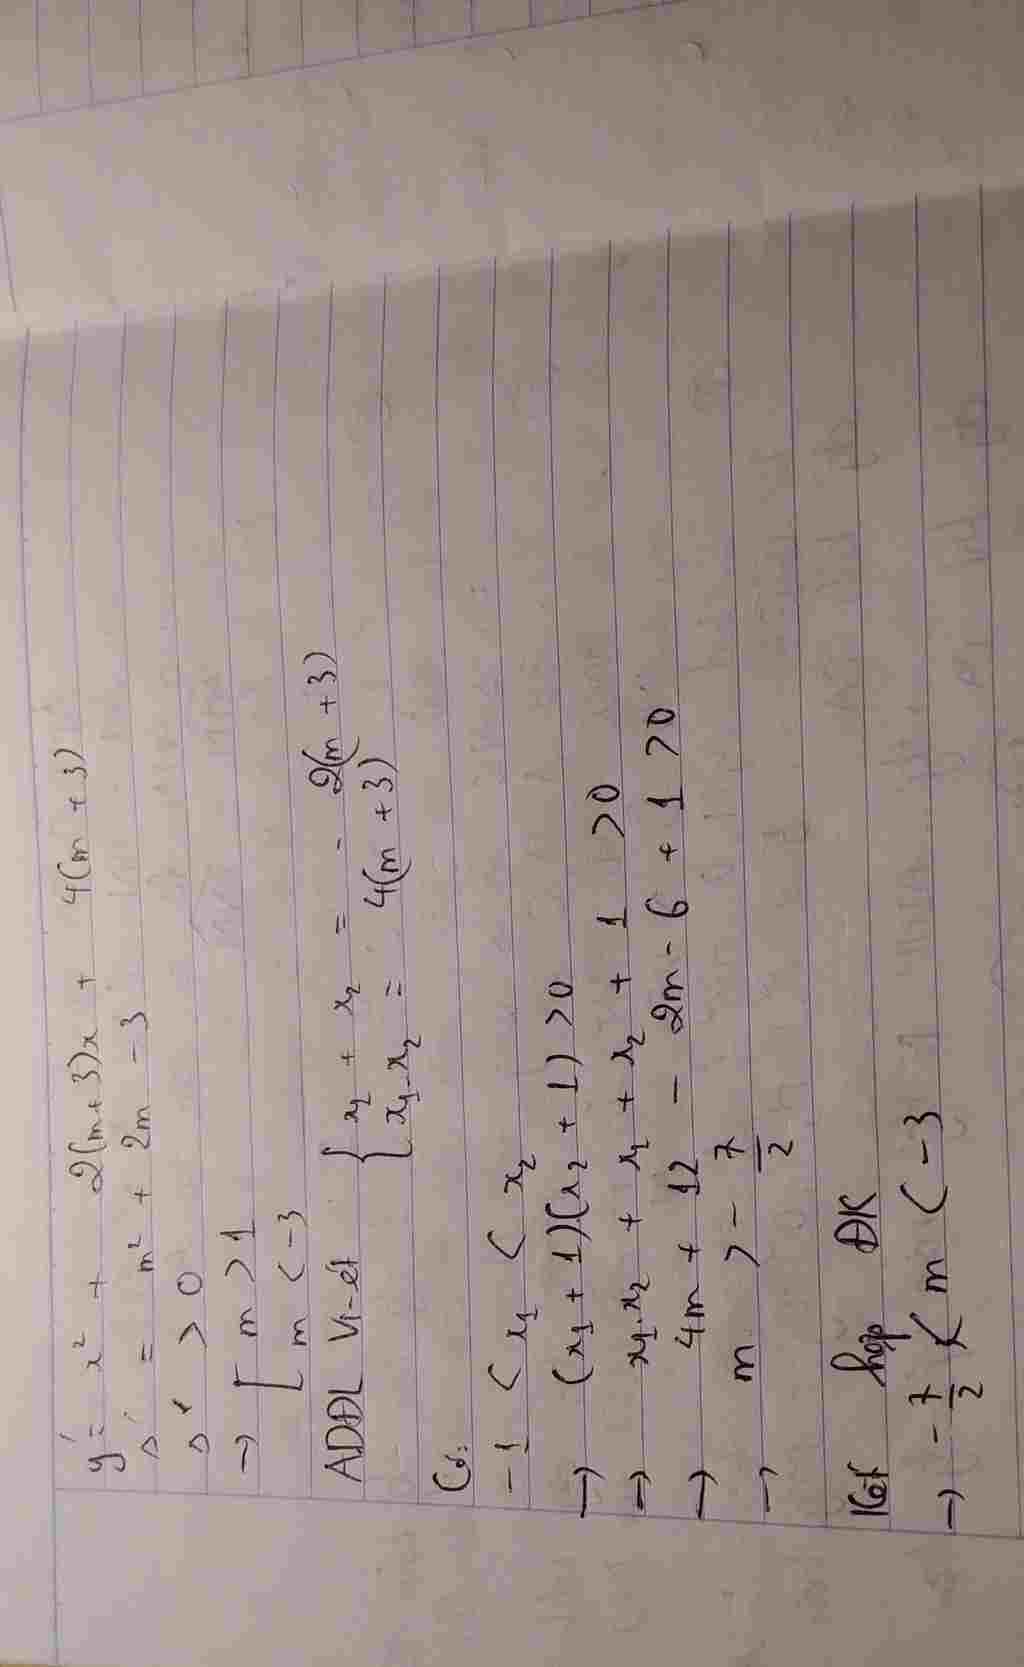 y' = x² + 2(m+3)x + 4(m+3)
Δ' = m² + 2m - 3
Δ' > 0
→ [ m > 1
m < -3
ADĐL Vi-ét { x₁ + x₂ = - 2(m+3)
x₁.x₂ = 4(m+3)
Có:
-1 < x₁ < x₂
→ (x₁ + 1)(x₂ + 1) > 0
→ x₁.x₂ + x₁ + x₂ + 1 > 0
→ 4m + 12 - 2m - 6 + 1 > 0
→ m > - 7/2
Kết hợp ĐK
→ - 7/2 < m < -3